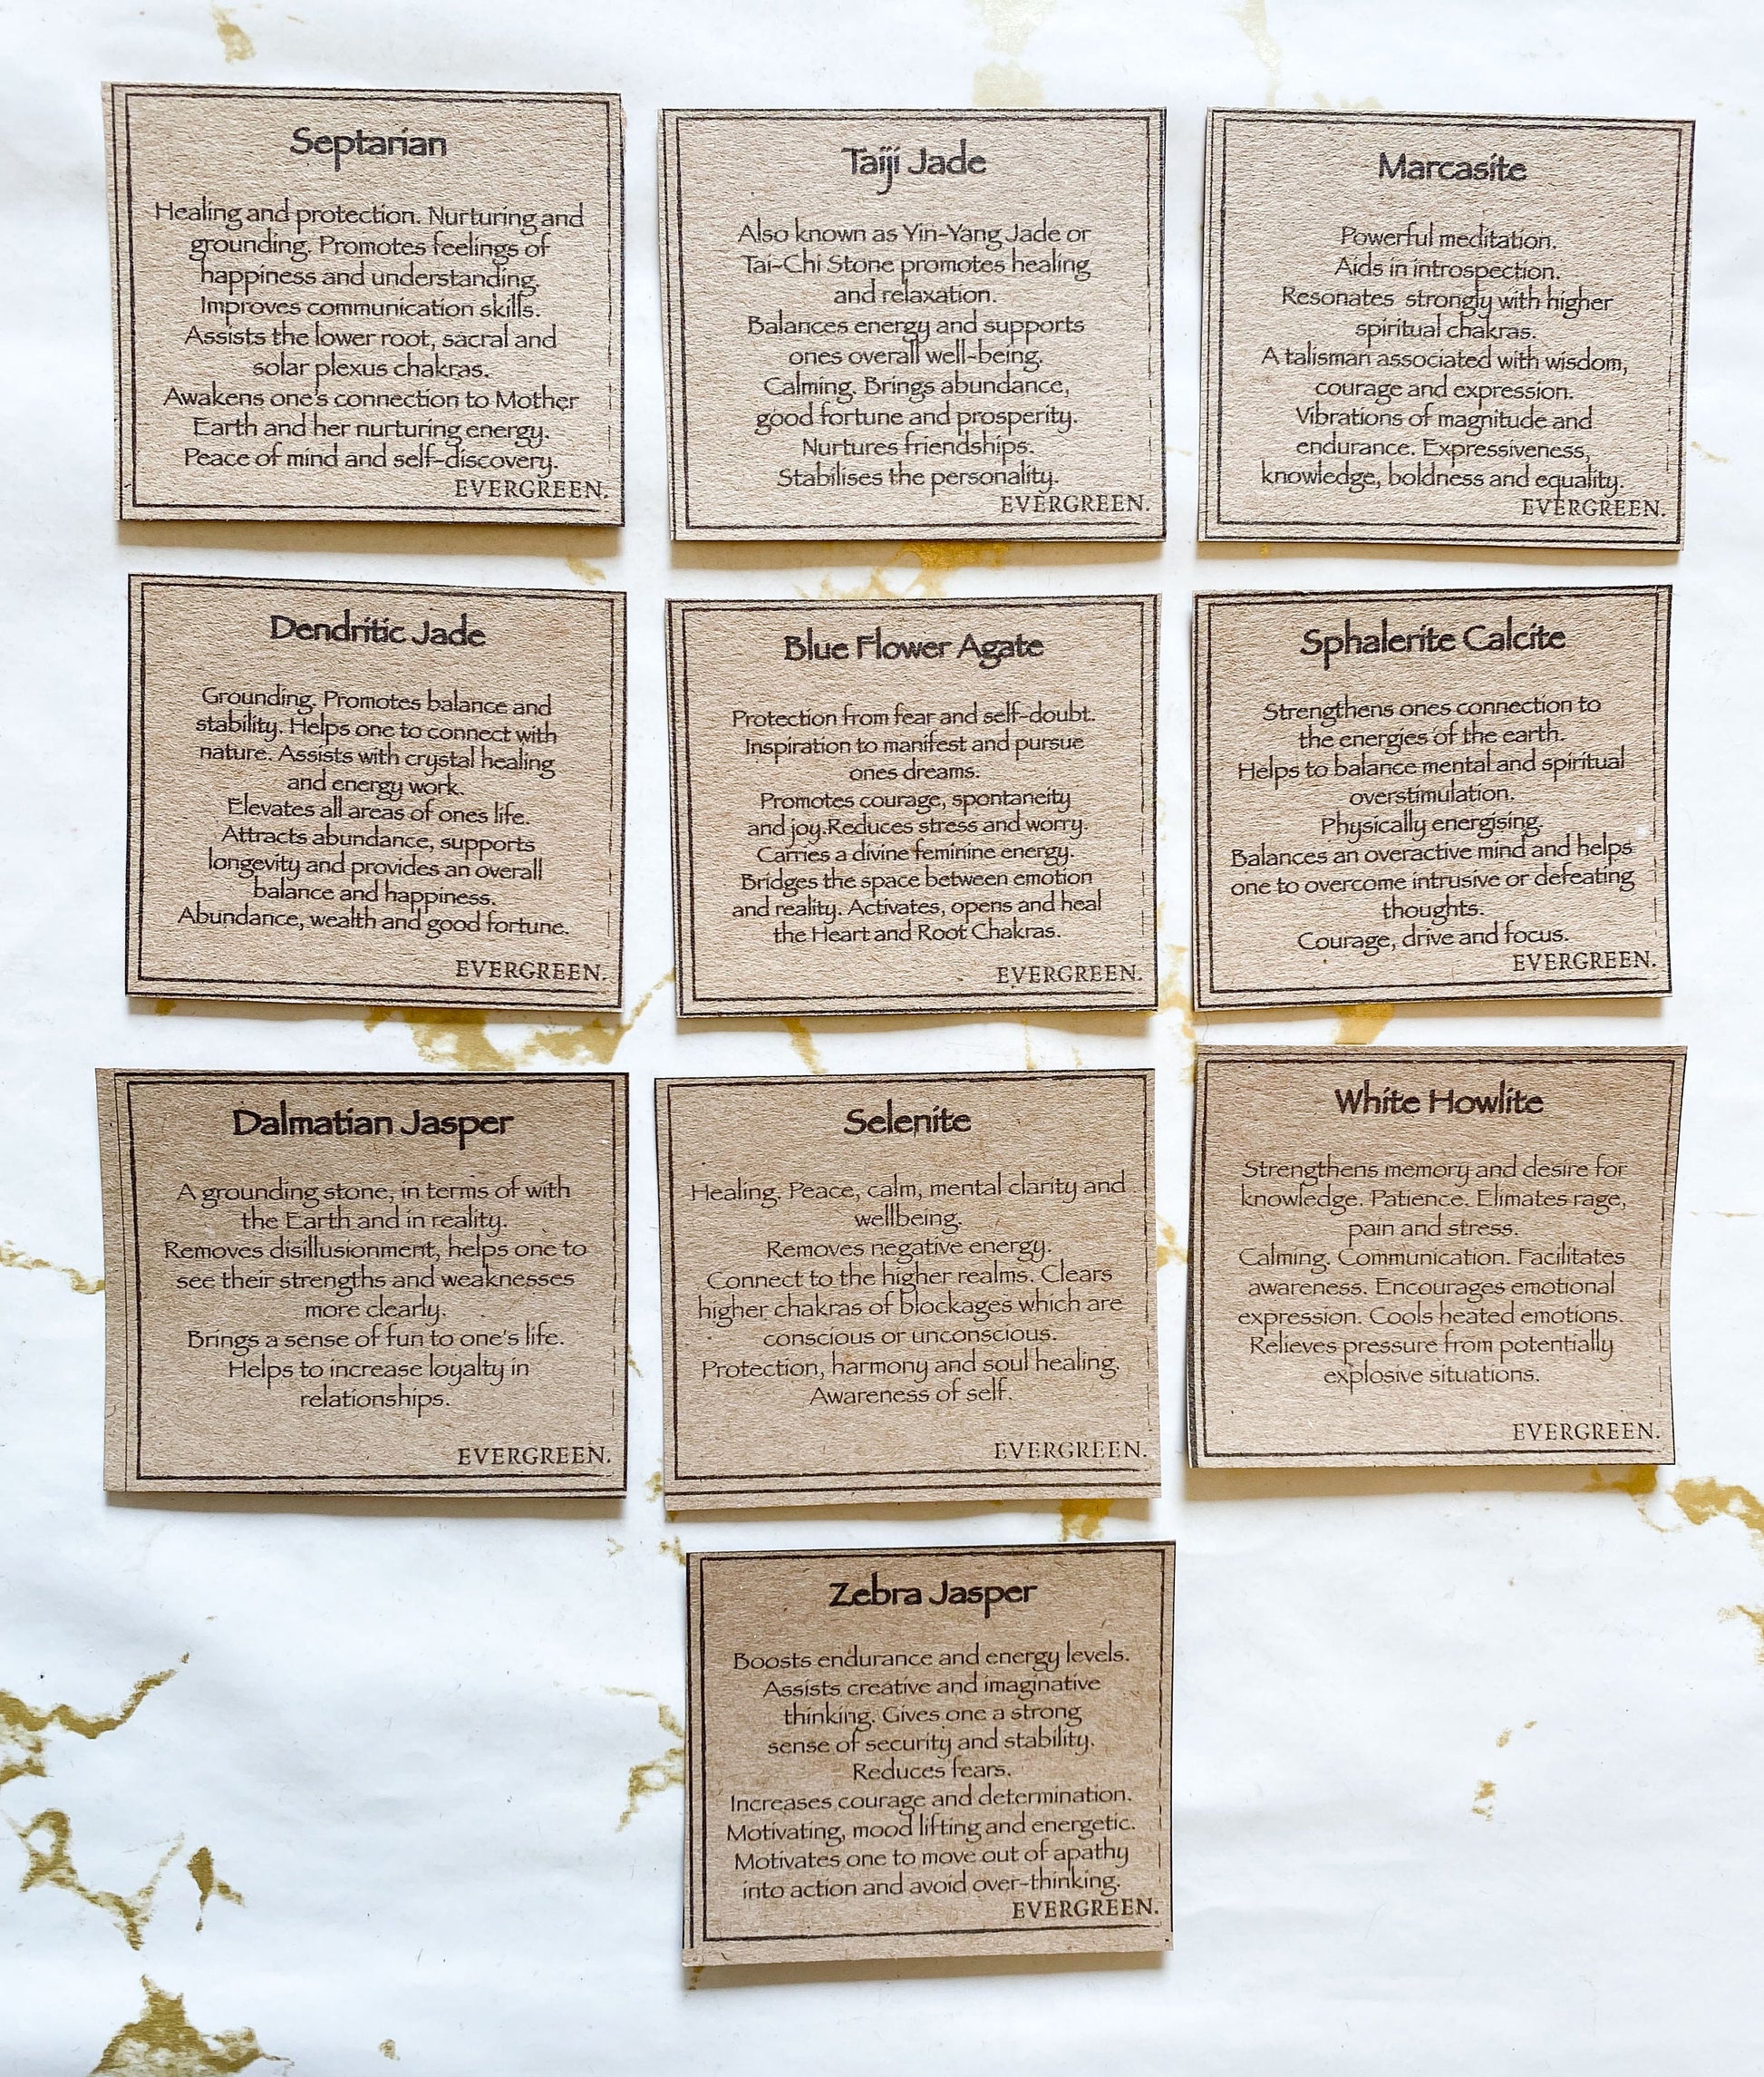 Septarian
Healing and protection. Nurturing and
grounding. Promotes feelings of
happiness and understanding.
Improves communication skills.
Assists the lower root, sacral and
solar plexus chakras.
Awakens one's connection to Mother
Earth and her nurturing energy.
Peace of mind and self-discovery.
EVERGREEN.
Taiji Jade
Also known as Yin-Yang Jade or
Tai-Chi Stone promotes healing
and relaxation.
Balances energy and supports
ones overall well-being.
Calming. Brings abundance,
good fortune and prosperity.
Nurtures friendships.
Stabilises the personality.
EVERGREEN.
Marcasite
Powerful meditation.
Aids in introspection.
Resonates strongly with higher
spiritual chakras.
A talisman associated with wisdom,
courage and expression.
Vibrations of magnitude and
endurance. Expressiveness,
knowledge, boldness and equality.
EVERGREEN.
Dendritic Jade
Grounding. Promotes balance and
stability. Helps one to connect with
nature. Assists with crystal healing
and energy work.
Elevates all areas of ones life.
Attracts abundance, supports
longevity and provides an overall
balance and happiness.
Abundance, wealth and good fortune.
EVERGREEN.
Blue Flower Agate
Protection from fear and self-doubt.
Inspiration to manifest and pursue
ones dreams.
Promotes courage, spontaneity
and joy.Reduces stress and worry.
Carries a divine feminine energy.
Bridges the space between emotion
and reality. Activates, opens and heal
the Heart and Root Chakras.
EVERGREEN.
Sphalerite Calcite
Strengthens ones connection to
the energies of the earth.
Helps to balance mental and spiritual
overstimulation.
Physically energising.
Balances an overactive mind and helps
one to overcome intrusive or defeating
thoughts.
Courage, drive and focus.
EVERGREEN.
Dalmatian Jasper
A grounding stone, in terms of with
the Earth and in reality.
Removes disillusionment, helps one to
see their strengths and weaknesses
more clearly.
Brings a sense of fun to one's life.
Helps to increase loyalty in
relationships.
EVERGREEN.
Selenite
Healing. Peace, calm, mental clarity and
wellbeing.
Removes negative energy.
Connect to the higher realms. Clears
higher chakras of blockages which are
conscious or unconscious.
Protection, harmony and soul healing.
Awareness of self.
EVERGREEN.
White Howlite
Strengthens memory and desire for
knowledge. Patience. Elimates rage,
pain and stress.
Calming. Communication. Facilitates
awareness. Encourages emotional
expression. Cools heated emotions.
Relieves pressure from potentially
explosive situations.
EVERGREEN.
Zebra Jasper
Boosts endurance and energy levels.
Assists creative and imaginative
thinking. Gives one a strong
sense of security and stability.
Reduces fears.
Increases courage and determination.
Motivating, mood lifting and energetic.
Motivates one to move out of apathy
into action and avoid over-thinking.
EVERGREEN.